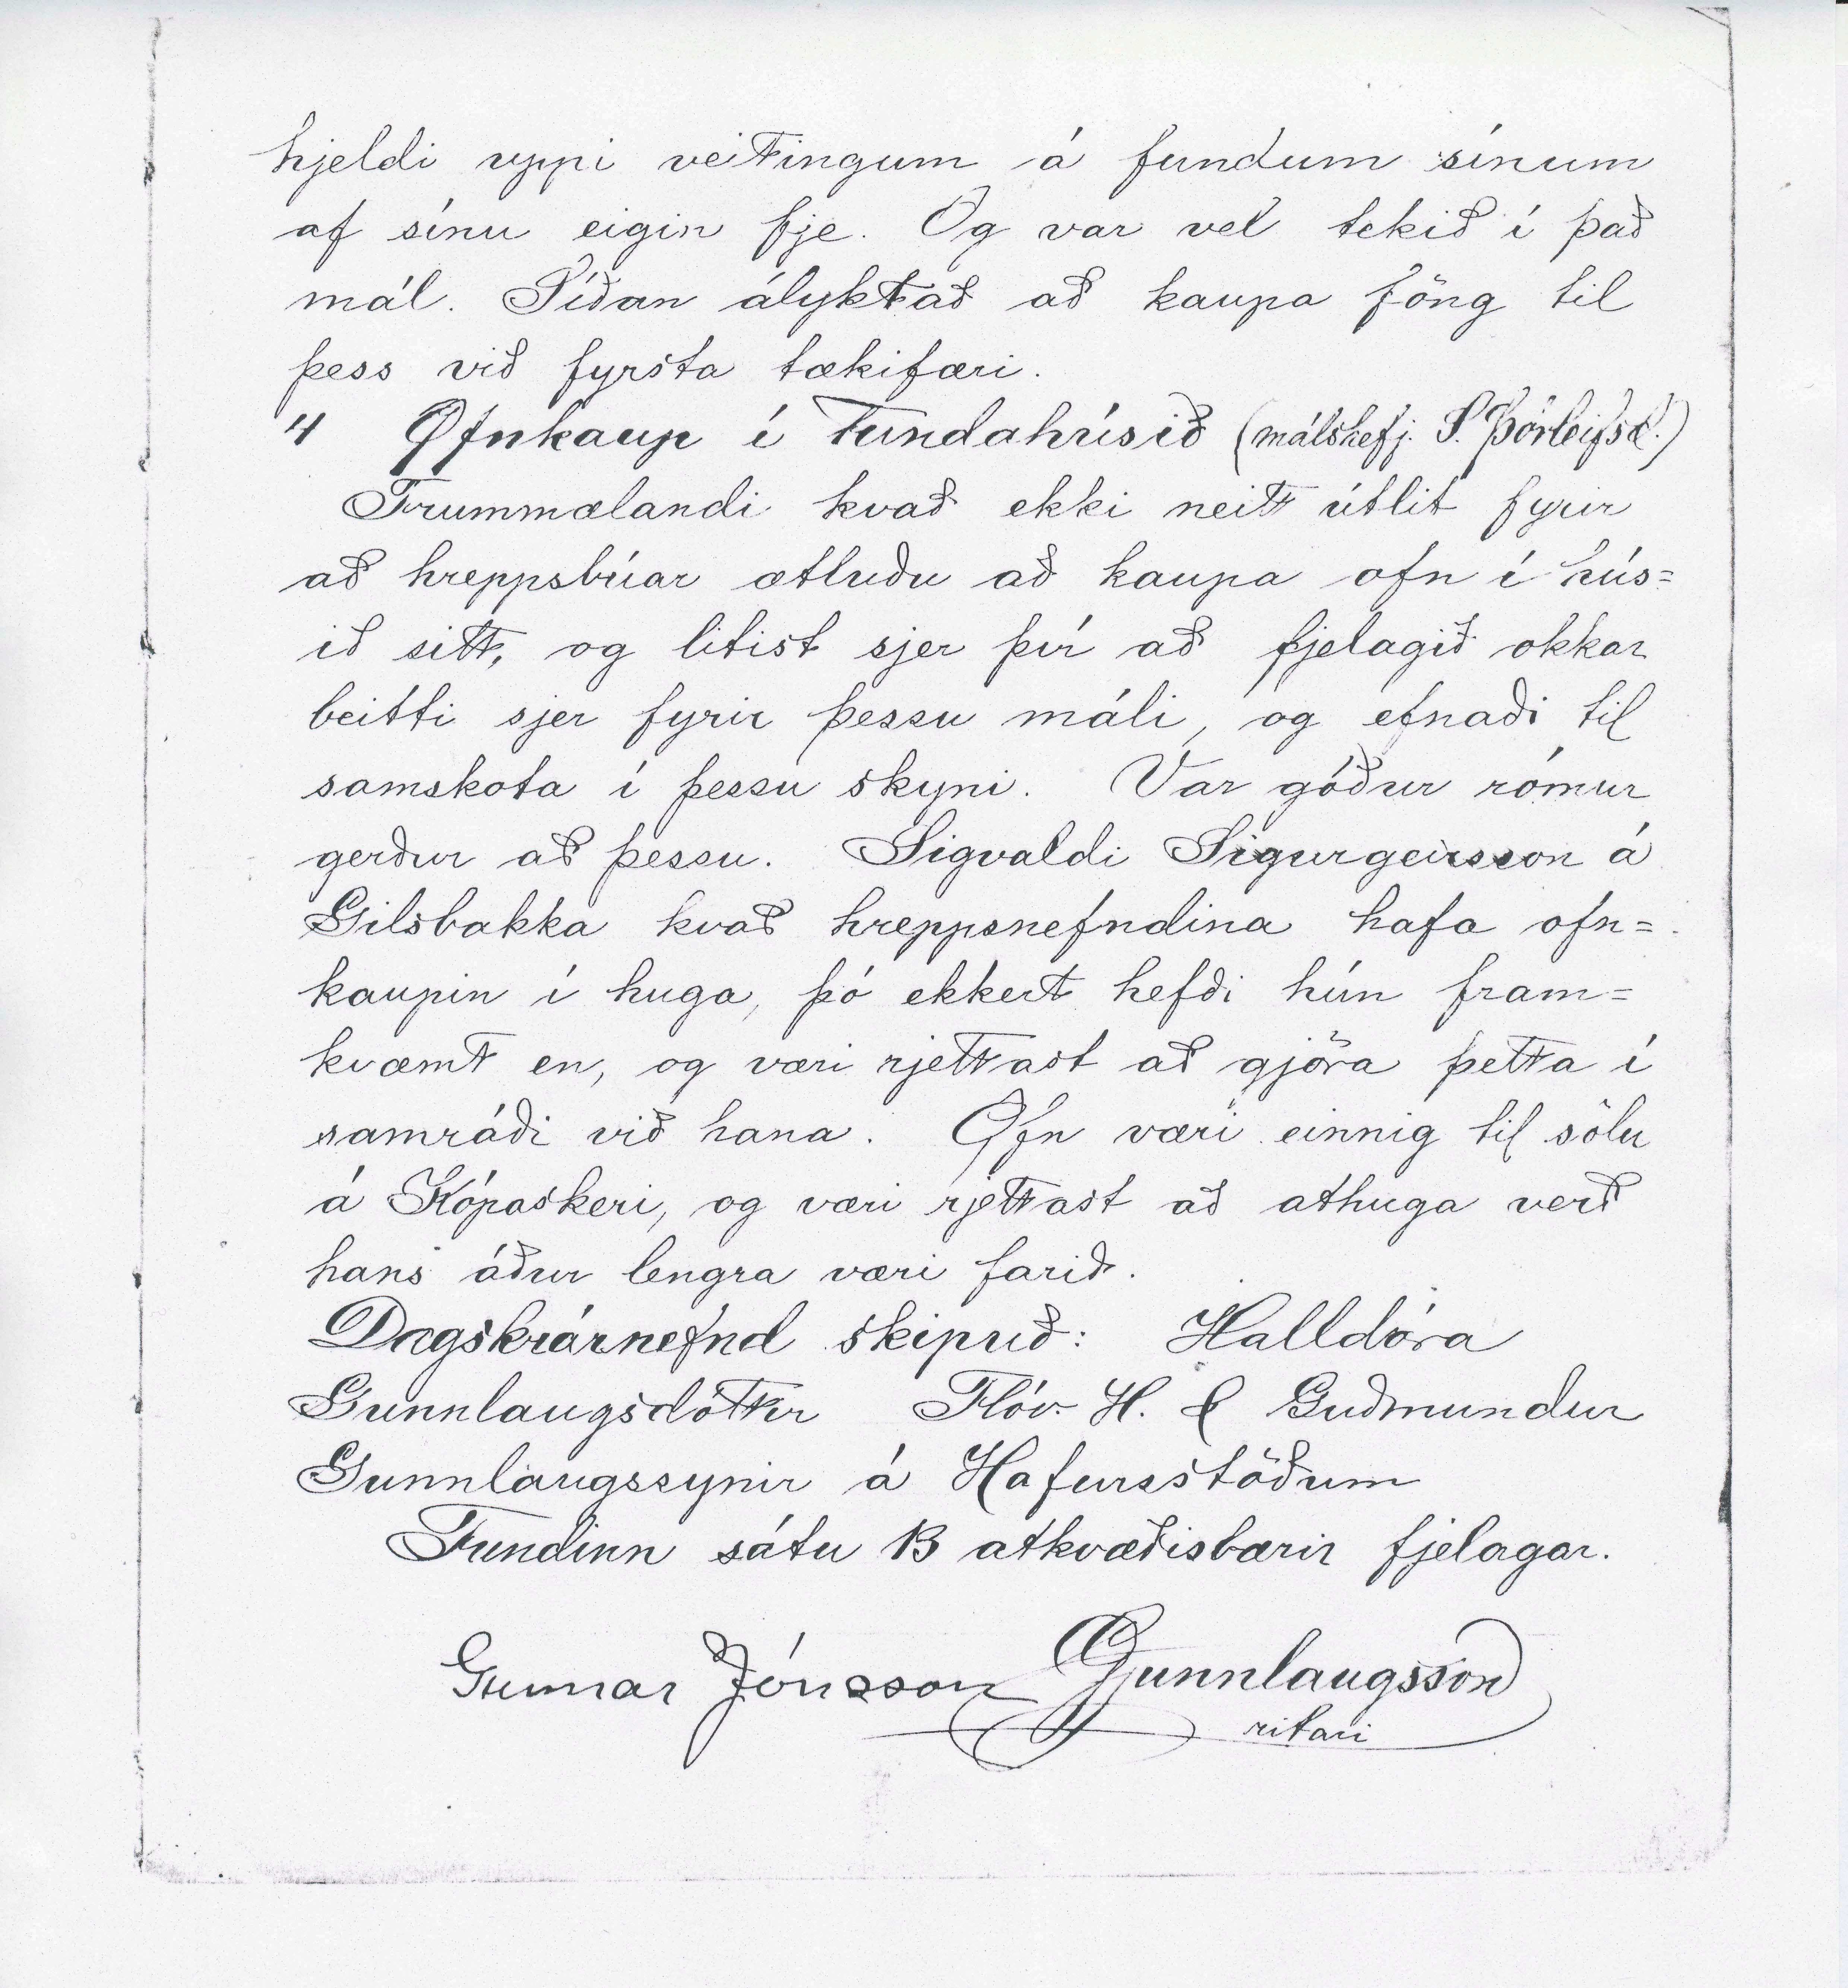 hjeldi uppi veitingum á fundum sínum
af sínu eigin fje. Og var vel tekið í það
mál. Síðan ályktað að kaupa föng til
þess við fyrsta tækifæri.
4 Ofnkaup í Fundahúsið (málshefj. S. Þorleifsd.)
Frummælandi kvað ekki neitt útlit fyrir
að hreppsbúar ætluðu að kaupa ofn í hús=
ið sitt, og litist sjer því að fjelagið okkar
beitti sjer fyrir þessu máli, og efnaði til
samskota í þessu skyni. Var góður rómur
gerður að þessu. Sigvaldi Sigurgeirsson á
Gilsbakka kvað hreppsnefndina hafa ofn=
kaupin í huga, þó ekkert hefði hún fram=
kvæmt en, og væri rjettast að gjöra þetta í
samráði við hana. Ofn væri einnig til sölu
á Kópaskeri, og væri rjettast að athuga verð
hans áður lengra væri farið.
Dagskrárnefnd skipuð: Halldóra
Gunnlaugsdóttir Flóv. H. & Guðmundur
Gunnlaugssynir á Hafursstöðum
Fundinn sátu 13 atkvæðisbærir fjelagar.
Gunnar Jónsson Gunnlaugsson
ritari